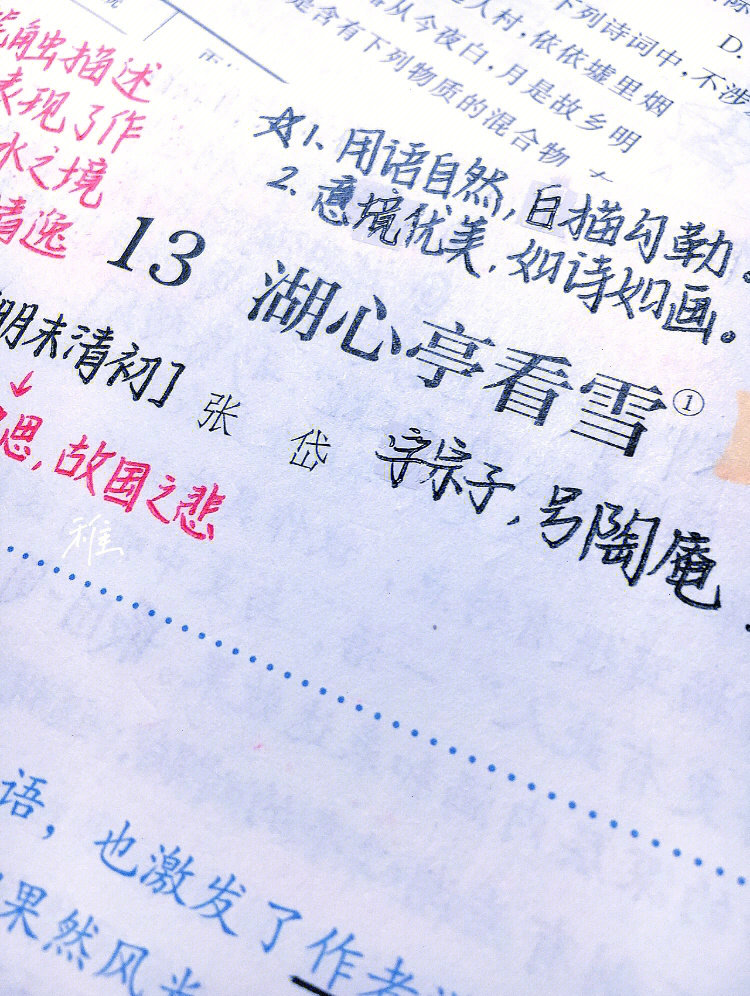 下列诗词中，不涉
D.
人村，依依墟里烟
从今夜白，月是故乡明
是含有下列物质的混合物
触描述
表现了作
水之境
情逸
☆1、用语自然，白描勾勒。
2. 意境优美，如诗如画。
13 湖心亭看雪①
明末清初] 张 岱 字宗子，号陶庵
↓
思，故国之悲
雅
语，也激发了作者
果然风光